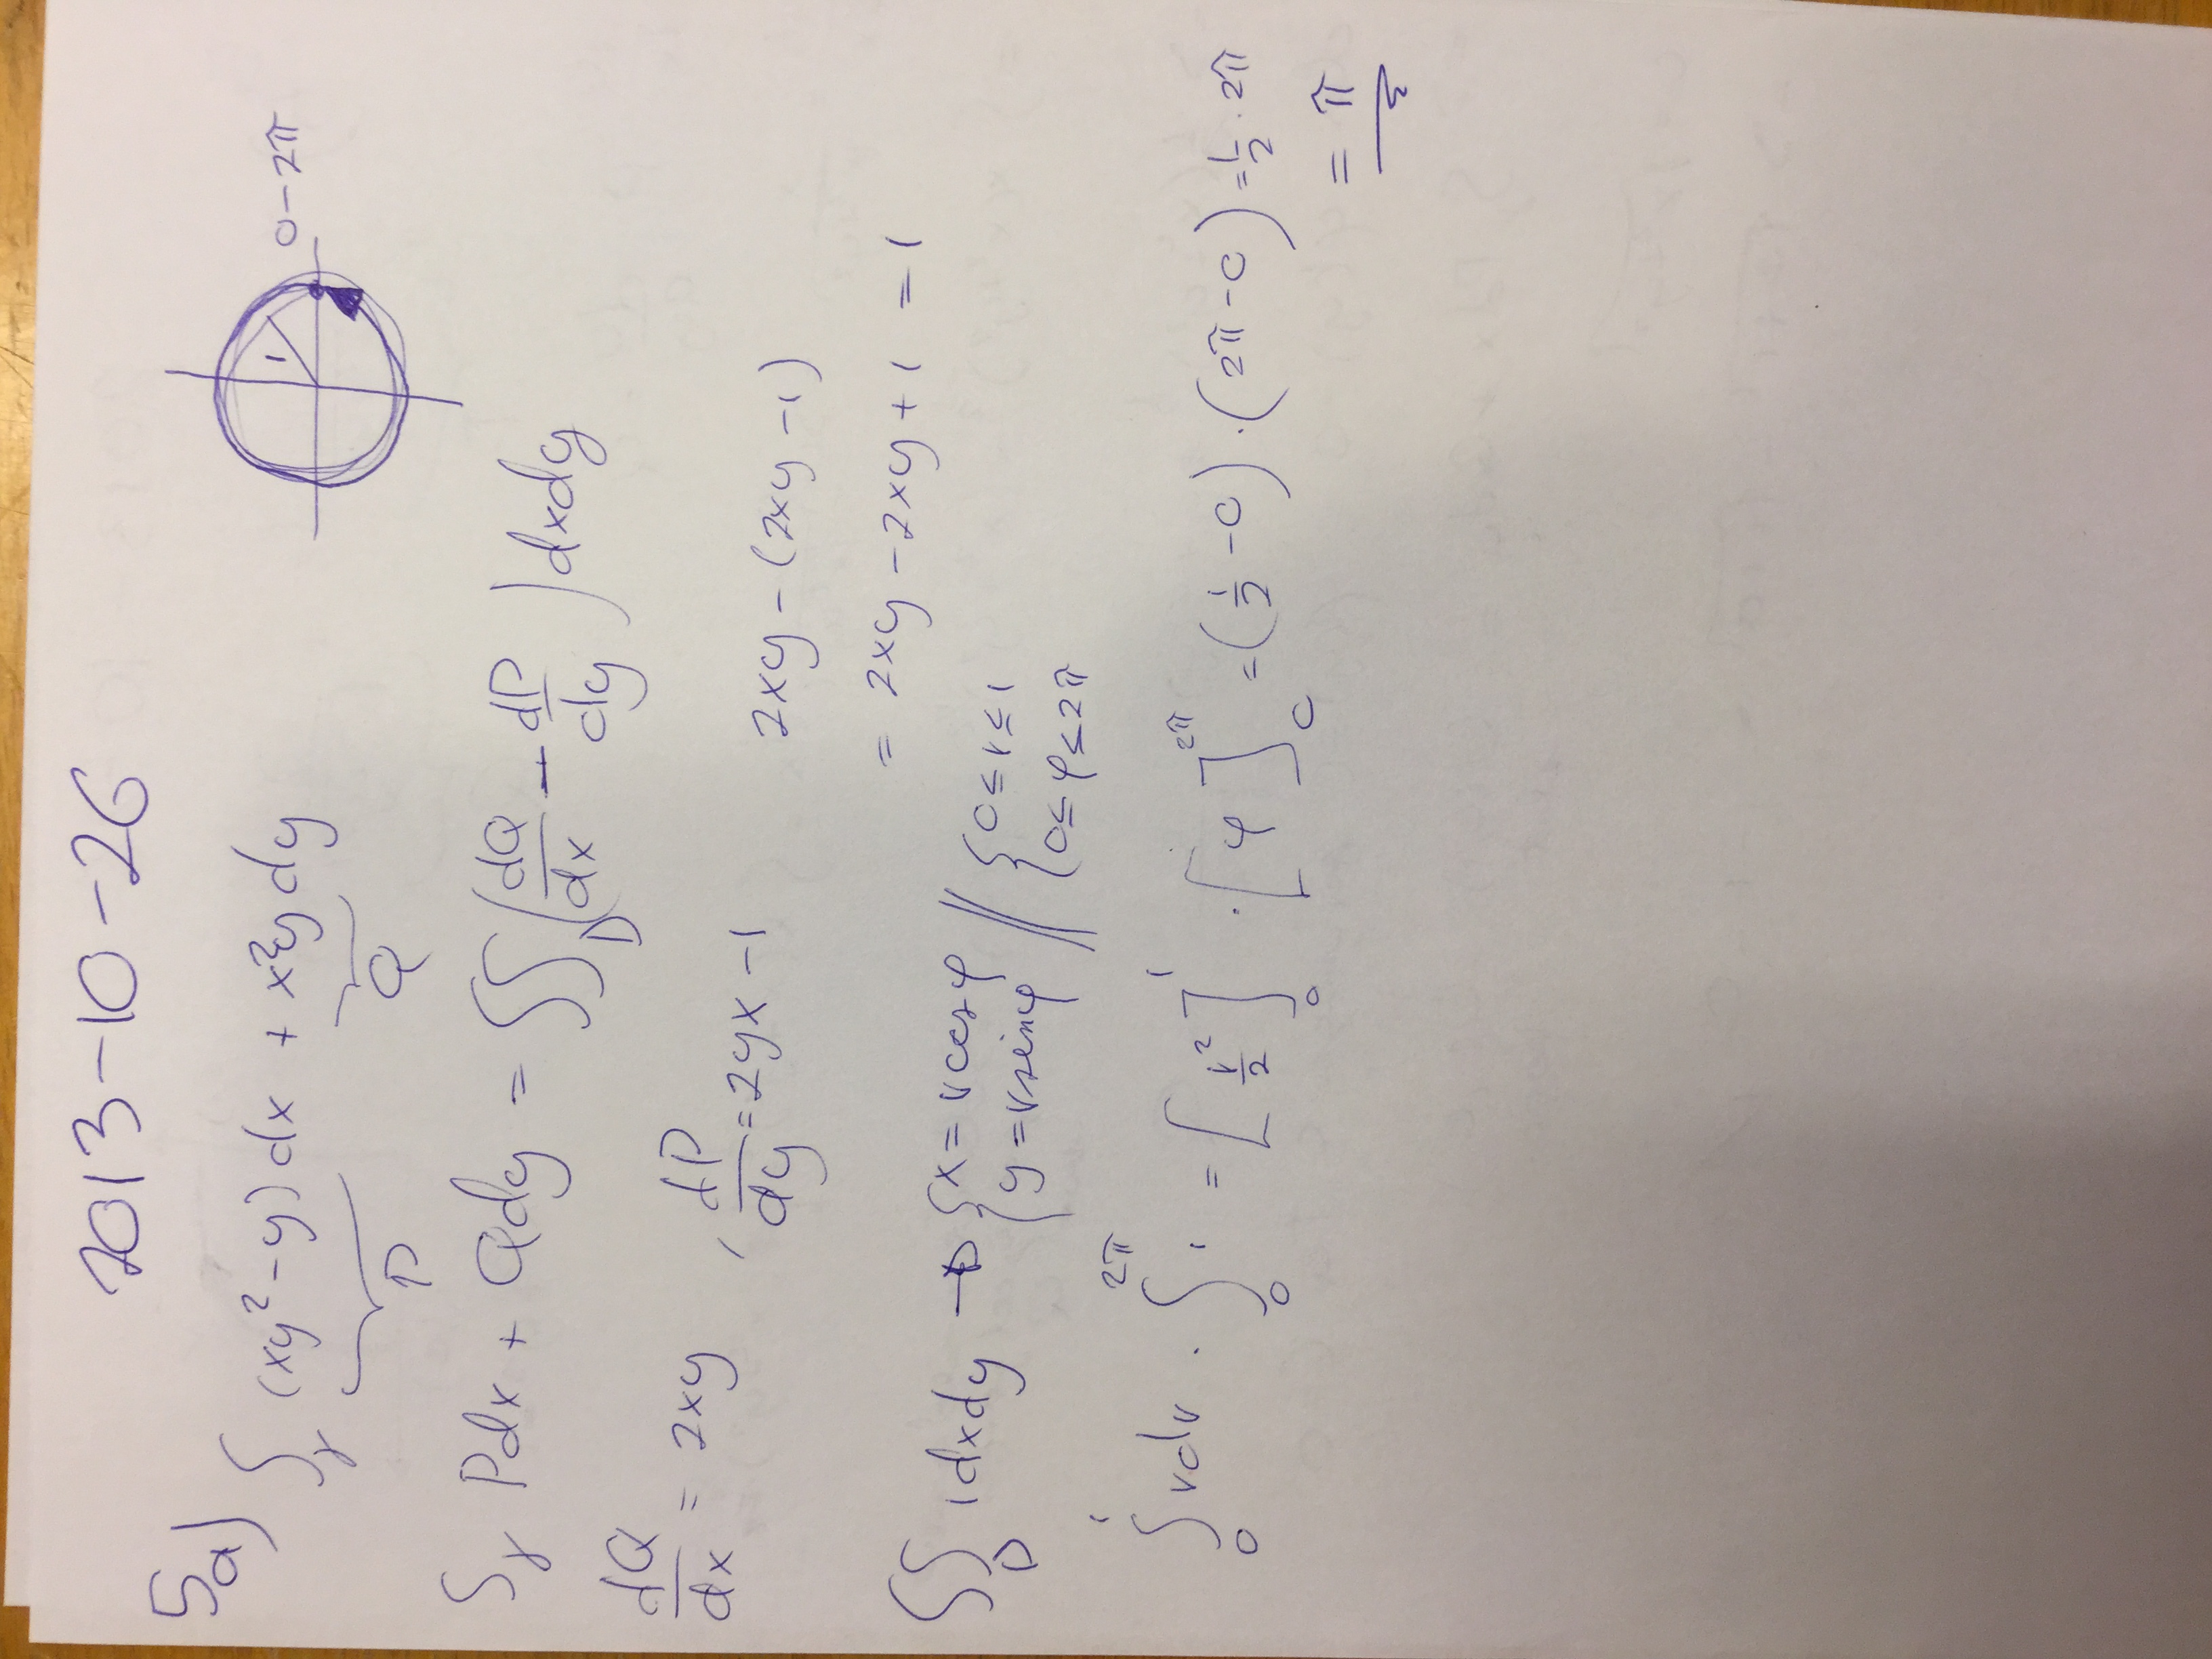 2013-10-26
5a)
∫γ (xy²-y)dx + x²y dy
P Q
1 0-2π
∫γ Pdx + Qdy = ∬D (dQ/dx - dP/dy) dxdy
dQ/dx = 2xy , dP/dy = 2yx -1
2xy - (2xy -1)
= 2xy - 2xy + 1 = 1
∬D 1dxdy → { x = rcosφ y = rsinφ // { 0≤r≤1 0≤φ≤2π
∫₀¹ rdr · ∫₀^2π 1 = [r²/2]₀¹ · [φ]₀^2π = (1/2 - 0) · (2π - 0) = 1/2 · 2π
= π